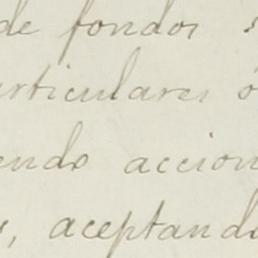 de fondos s
articulares ó
endo accion
s, aceptando